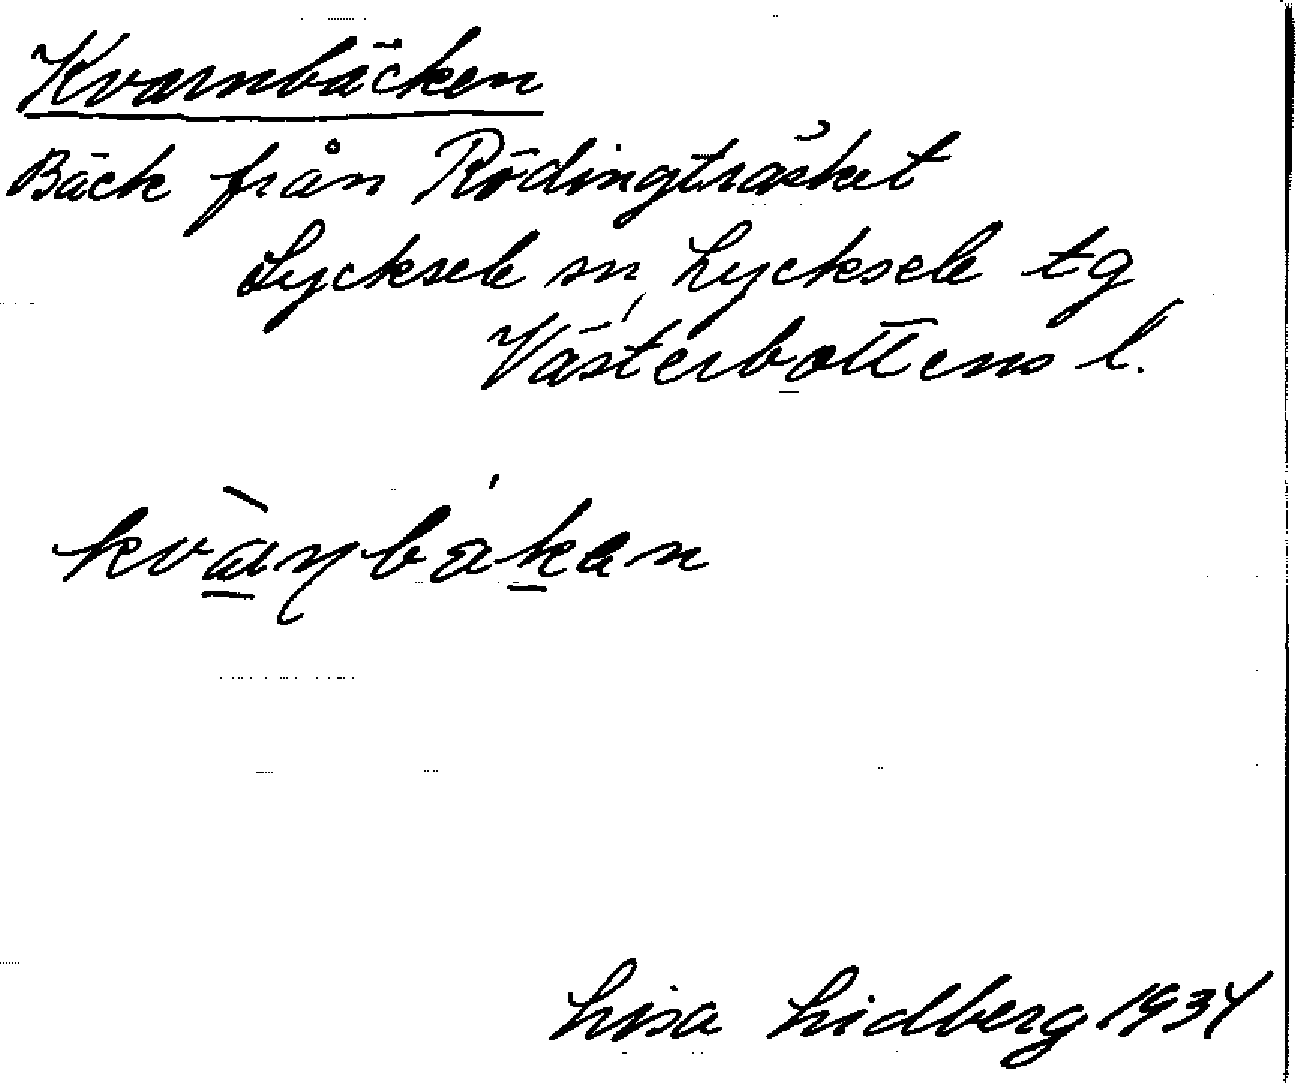 Kvarnbäcken
Bäck från Rödingträsket
Lycksele sn, Lycksele tg
Västerbottens l.
Lisa Lidberg 1934